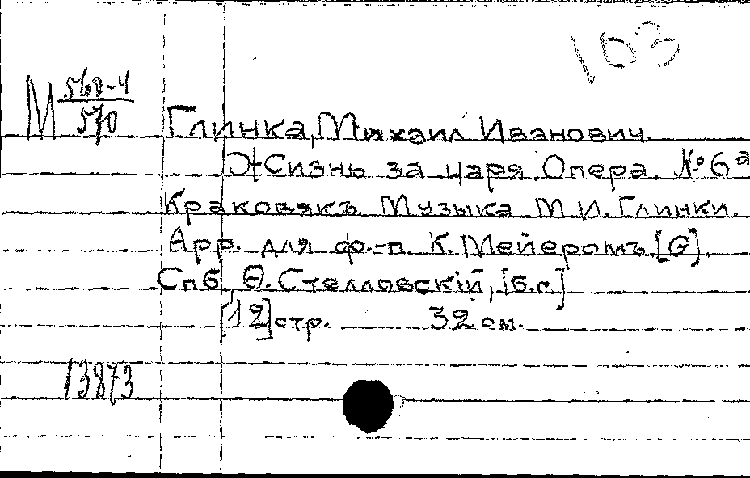 103
М 560-4
570
Глинка, Михаил Иванович.
Жизнь за царя. Опера. № 6а
Краковякъ. Музыка М.И. Глинки.
Арр. для ф.-п. К. Мейеромъ. [G].
Спб, Ѳ. Стелловскій, [б.г.]
[12] стр. 32 см.
13873